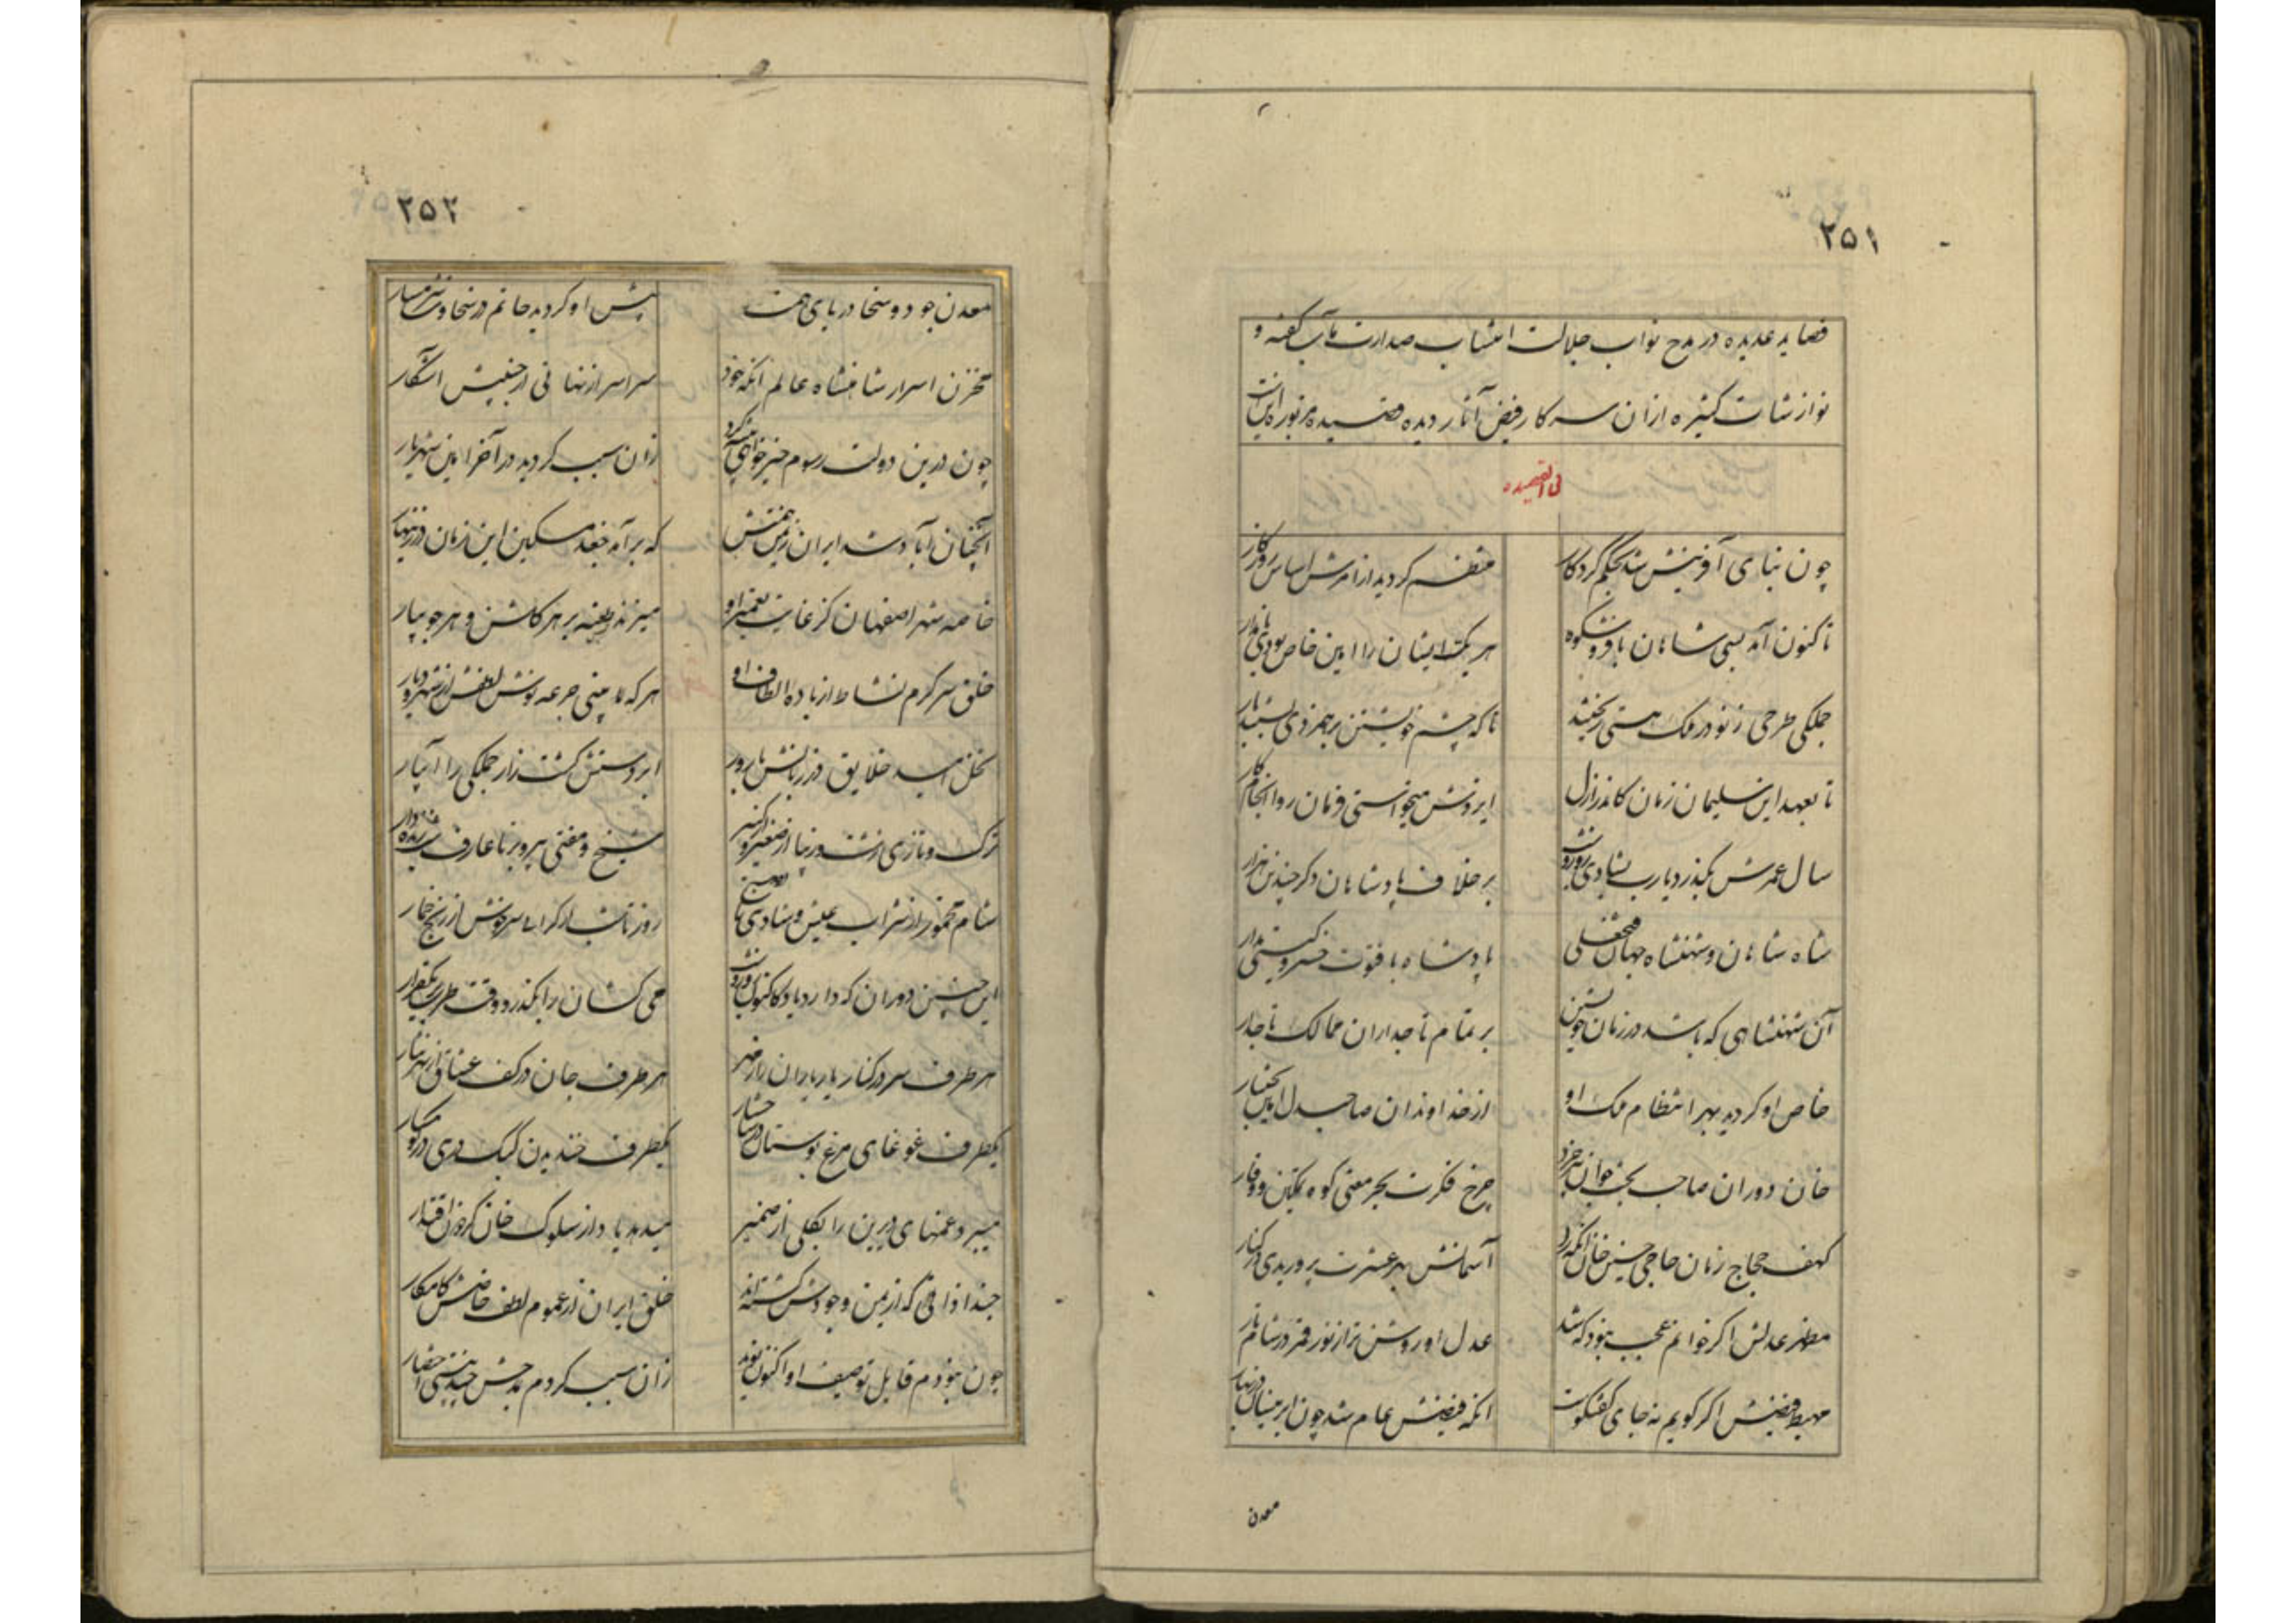 ۲۵۱
قصاید عدیده در مدح نواب جلالت انتساب صدارت مآب کفته و
نوازشات کثیره ازان سرکار فیض آثار دیده قصیده مزبوره اینست
فی القصیده
چون بنای آفرینش شد بحکم کردکار منتظم کردید از امرش اساس روزکار
تا کنون آمد بسی شاهان با فر و شکوه هر یکی ز ایشان را امین خاص بودی نامدار
جملکی طرحی ز نو در ملک هستی ریختند تا که چشم خویشتن بر هم زدی
تا بعهد این سلیمان زمان کاندر ازل ایزدش میخواستی فرمان روا انجام کار
سال عمرش بکذرد یارب بشادی روز و شب بر خلاف پادشاهان دکر چندین هزار
شاه شاهان و شهنشاه جهان فتحعلی پادشاه با فتوت خسرو کیتی مدار
آن شهنشاهی که باشد در زمان خویشتن بر تمام تاجداران ممالک تاجدار
خاص او کردید بهر انتظام ملک او از خداوندان صاحبدل امین
خان دوران صاحب بخت جوان پیر خرد چرخ فکرت بحر معنی کوه تمکین و وقار
کهف حجاج زمان حاجی حسین خان آنکه زد آسمانش بهر عشرت پروریدی در کنار
مظهر عدلش اکر خوانم عجب نبود که شد عدل او روشن تر از نور قمر در شام تار
مهبط فیضش اکر کویم نه جای کفتکوست آنکه فیضش عام شد چون ابر نیسان در بهار
معدن
۲۵۲
معدن جود و سخا دریای همت پیش او کردید حاتم در سخاوت شرمسار
مخزن اسرار شاهنشاه عالم آنکه خود سراسر از نهانی از جبینش آشکار
چون درین دولت رسوم خیرخواهی پیشه کرد زان سبب کردید در آخر امین شهریار
آنچنان آباد شد ایران ز یمن همتش که برآمد جغد مسکین این زمان در زینهار
خاصه شهر اصفهان کز غایت تعمیر او میزند طعنه بر هر کلشن و هر جویبار
خلق سرکرم نشاط از باده الطاف او هر که را بینی جرعه نوش لطفش از شهر و دیار
نخل امید خلایق بارور ابر دستش کشت زار جملکی را آبیار
ترک و تازی از صغیر و از کبیر شیخ و مفتی پیر و برنا عارف و
شام مخمور از شراب عیش و شادی تا صبح روز تا شب سرخوش از رنج خمار
این چنین دوران که دارد یاد کاکنون روز و شب می کشان را بکذرد وقت طرب
هر طرف سر در کنار یار یاران هر طرف جان در کف عشاق از بهر نثار
یکطرف غوغای مرغ بوستان یکطرف خندیدن کبک دری در کوهسار
میبرد غمهای دیرین را بکلی از ضمیر میدهد یاد از سلوک خان کردون اقتدار
حبذا ذاتی که از یمن وجودش کشته اند خلق ایران از عموم لطف خاصش کامکار
چون نبودم قابل توصیف او اکنون زان سبب کردم بمدحش چند بیتی اختصار